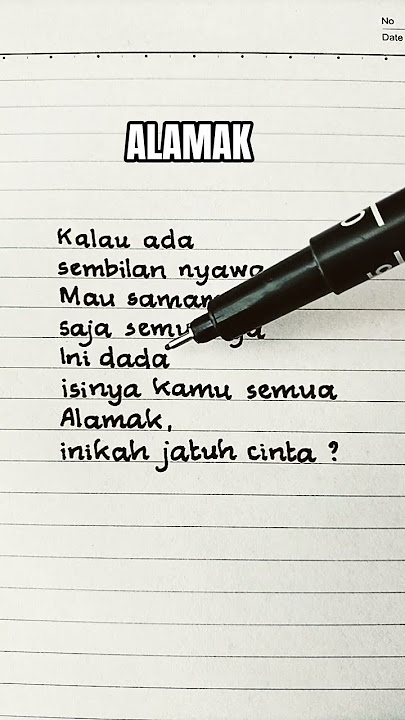 No
Date
ALAMAK
Kalau ada
sembilan nyawa
Mau
saja
Ini dada
isinya kamu semua
Alamak,
inikah jatuh cinta ?